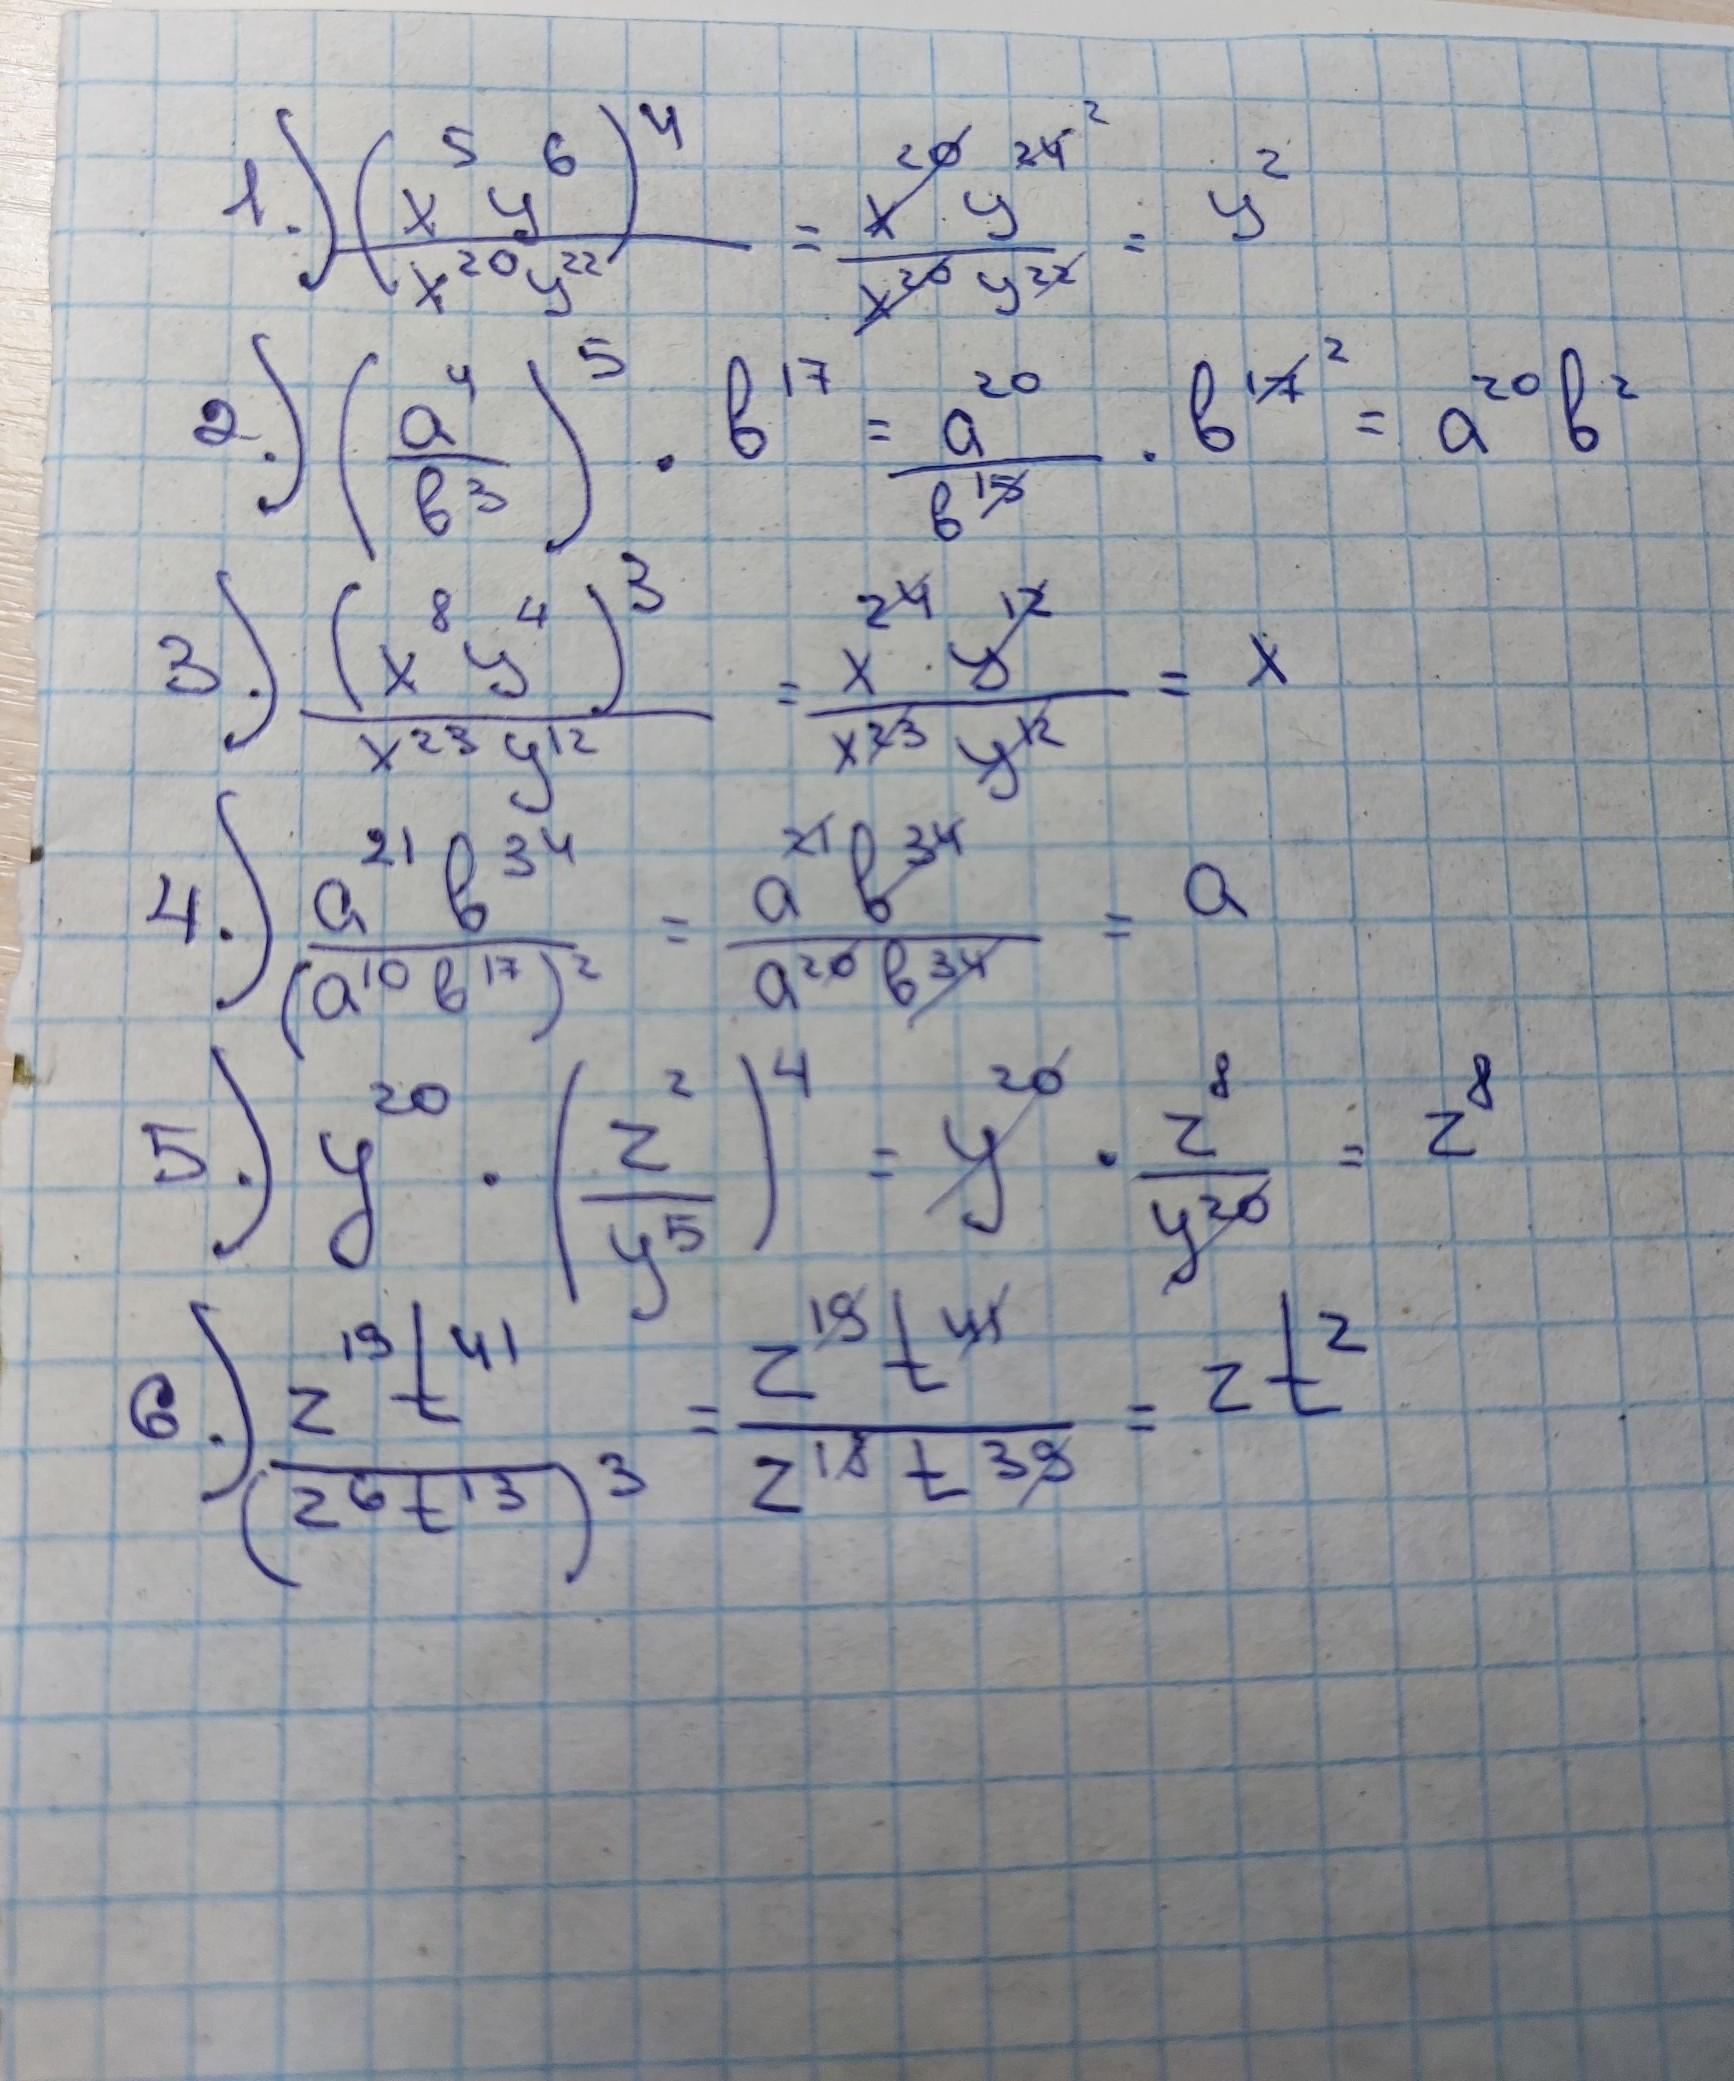 1.) (x⁵ y⁶)⁴ / x²⁰y²² = x²⁰ y²⁴ ² / x²⁰ y²² = y²
2.) (a⁴ / в³)⁵ · в¹⁷ = a²⁰ / в¹⁵ · в¹⁷ ² = a²⁰ в²
3.) (x⁸ y⁴)³ / x²³ y¹² = x²⁴ · y¹² / x²³ y¹² = x
4.) a²¹ в³⁴ / (a¹⁰ в¹⁷)² = a²¹ в³⁴ / a²⁰ в³⁴ = a
5.) y²⁰ · (z² / y⁵)⁴ = y²⁰ · z⁸ / y²⁰ = z⁸
6.) z¹⁹ t⁴¹ / (z⁶ t¹³)³ = z¹⁹ t⁴¹ / z¹⁸ t³⁹ = z t²